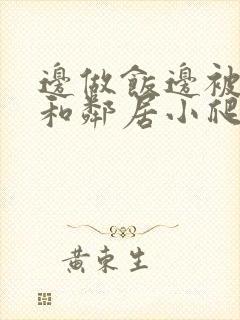 邊做飯邊被
和鄰居小爬
黃東生